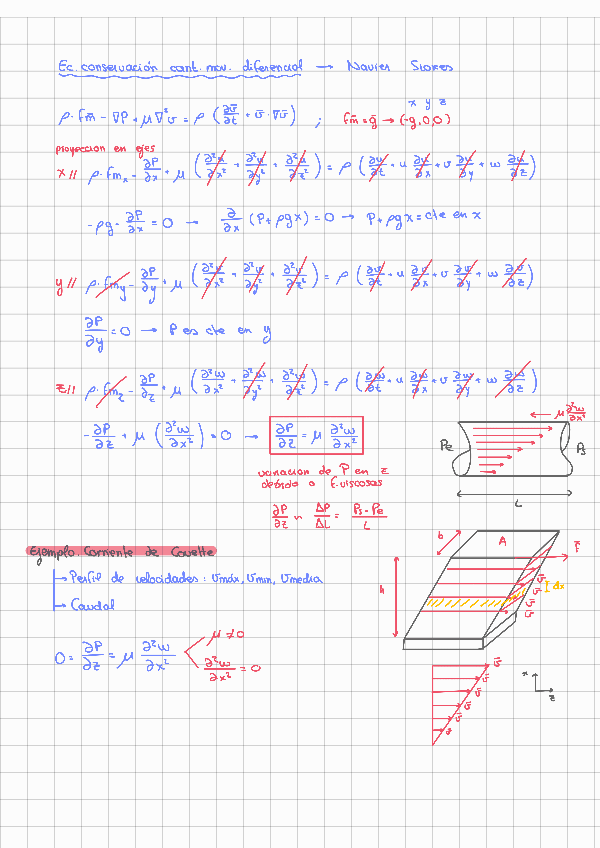 Ec. conservación cant. mov. diferencial → Navier Stokes
ρ · f̄m − ∇P + μ ∇²v̄ = ρ (∂v̄/∂t + v̄ · ∇v̄) ; f̄m = ḡ → (-g, 0, 0)
x y z
proyección en ejes
x// ρ · fmx − ∂P/∂x + μ (∂²u/∂x² + ∂²u/∂y² + ∂²u/∂z²) = ρ (∂u/∂t + u ∂u/∂x + v ∂u/∂y + w ∂u/∂z)
-ρg − ∂P/∂x = 0 → ∂/∂x (P + ρgx) = 0 → P + ρgx = cte en x
y// ρ · fmy − ∂P/∂y + μ (∂²v/∂x² + ∂²v/∂y² + ∂²v/∂z²) = ρ (∂v/∂t + u ∂v/∂x + v ∂v/∂y + w ∂v/∂z)
∂P/∂y = 0 → P es cte en y
z// ρ · fmz − ∂P/∂z + μ (∂²w/∂x² + ∂²w/∂y² + ∂²w/∂z²) = ρ (∂w/∂t + u ∂w/∂x + v ∂w/∂y + w ∂w/∂z)
-∂P/∂z + μ (∂²w/∂x²) = 0 → ∂P/∂z = μ ∂²w/∂x²
μ ∂²w/∂x²
Pe Ps
L
variación de P en z
debido a F. viscosas
∂P/∂z ~ ΔP/ΔL = Ps - Pe/L
Ejemplo. Corriente de Couette
→ Perfil de velocidades : vmáx, vmin, vmedia
→ Caudal
0 = ∂P/∂z = μ ∂²w/∂x²
μ ≠ 0
∂²w/∂x² = 0
b A F̄
h v̄ v̄ v̄ dx
v̄ v̄ v̄ v̄ v̄
x
z